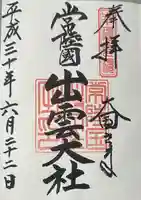 奉拝
常陸國
出雲大社
平成三十年六月二十二日